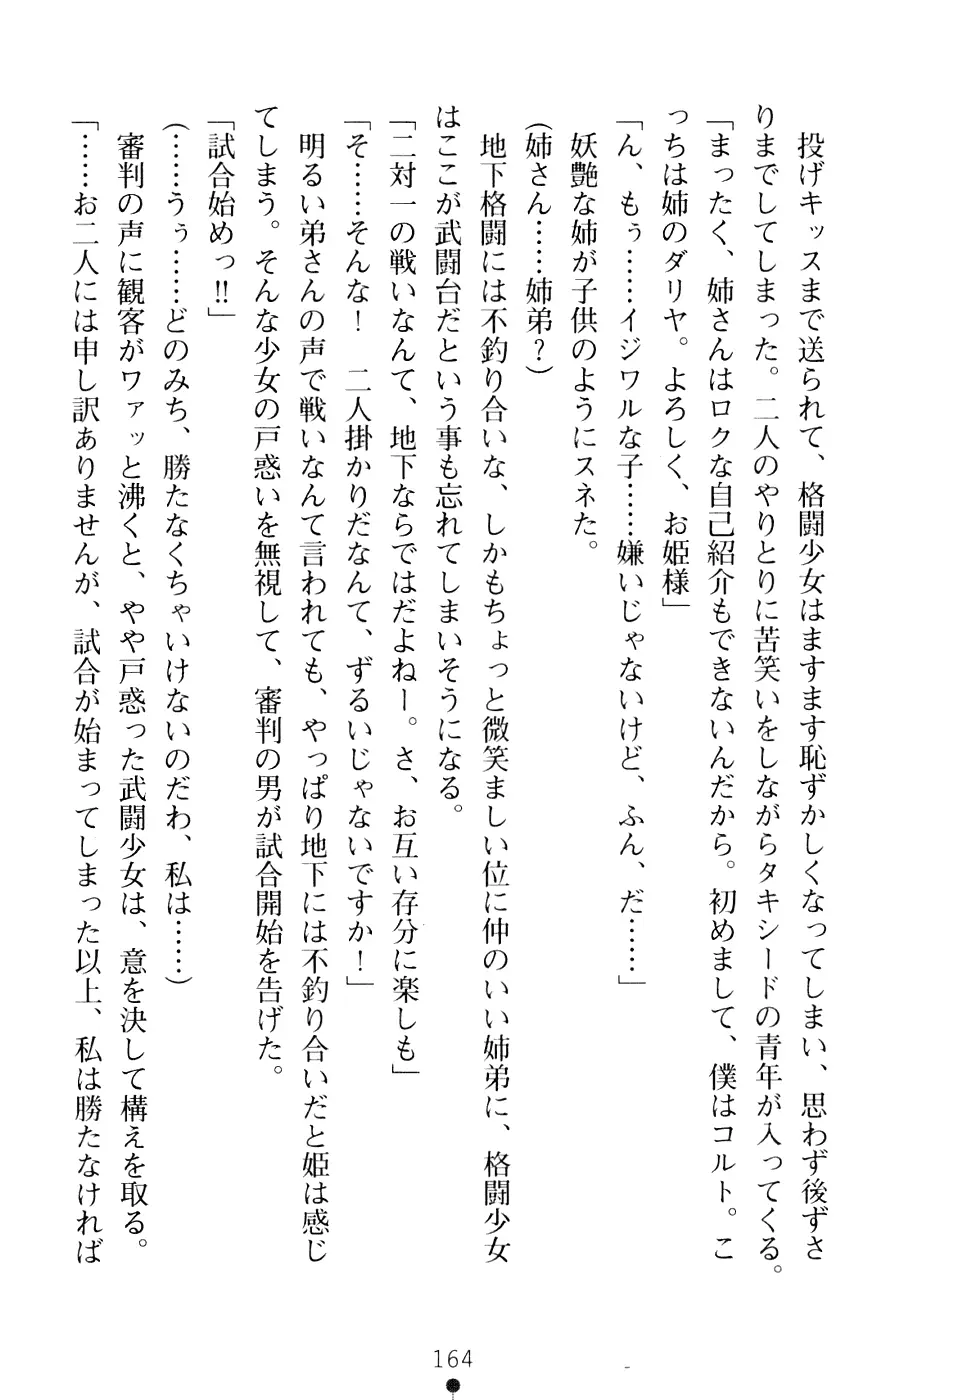 投げキッスまで送られて、格闘少女はますます恥ずかしくなってしまい、思わず後ずさ
りまでしてしまった。二人のやりとりに苦笑いをしながらタキシードの青年が入ってくる。
「まったく、姉さんはロクな自己紹介もできないんだから。初めまして、僕はコルト。こ
っちは姉のダリヤ。よろしく、お姫様」
「ん、もぅ……イジワルな子……嫌いじゃないけど、ふん、だ……」
妖艶な姉が子供のようにスネた。
(姉さん……姉弟？)
地下格闘には不釣り合いな、しかもちょっと微笑ましい位に仲のいい姉弟に、格闘少女
はここが武闘台だという事も忘れてしまいそうになる。
「二対一の戦いなんて、地下ならではだよねー。さ、お互い存分に楽しも」
「そ……そんな！　二人掛かりだなんて、ずるいじゃないですか！」
明るい弟さんの声で戦いなんて言われても、やっぱり地下には不釣り合いだと姫は感じ
てしまう。そんな少女の戸惑いを無視して、審判の男が試合開始を告げた。
「試合始めっ!!」
(……うぅ……どのみち、勝たなくちゃいけないのだわ、私は……)
審判の声に観客がワァッと沸くと、やや戸惑った武闘少女は、意を決して構えを取る。
「……お二人には申し訳ありませんが、試合が始まってしまった以上、私は勝たなければ
164